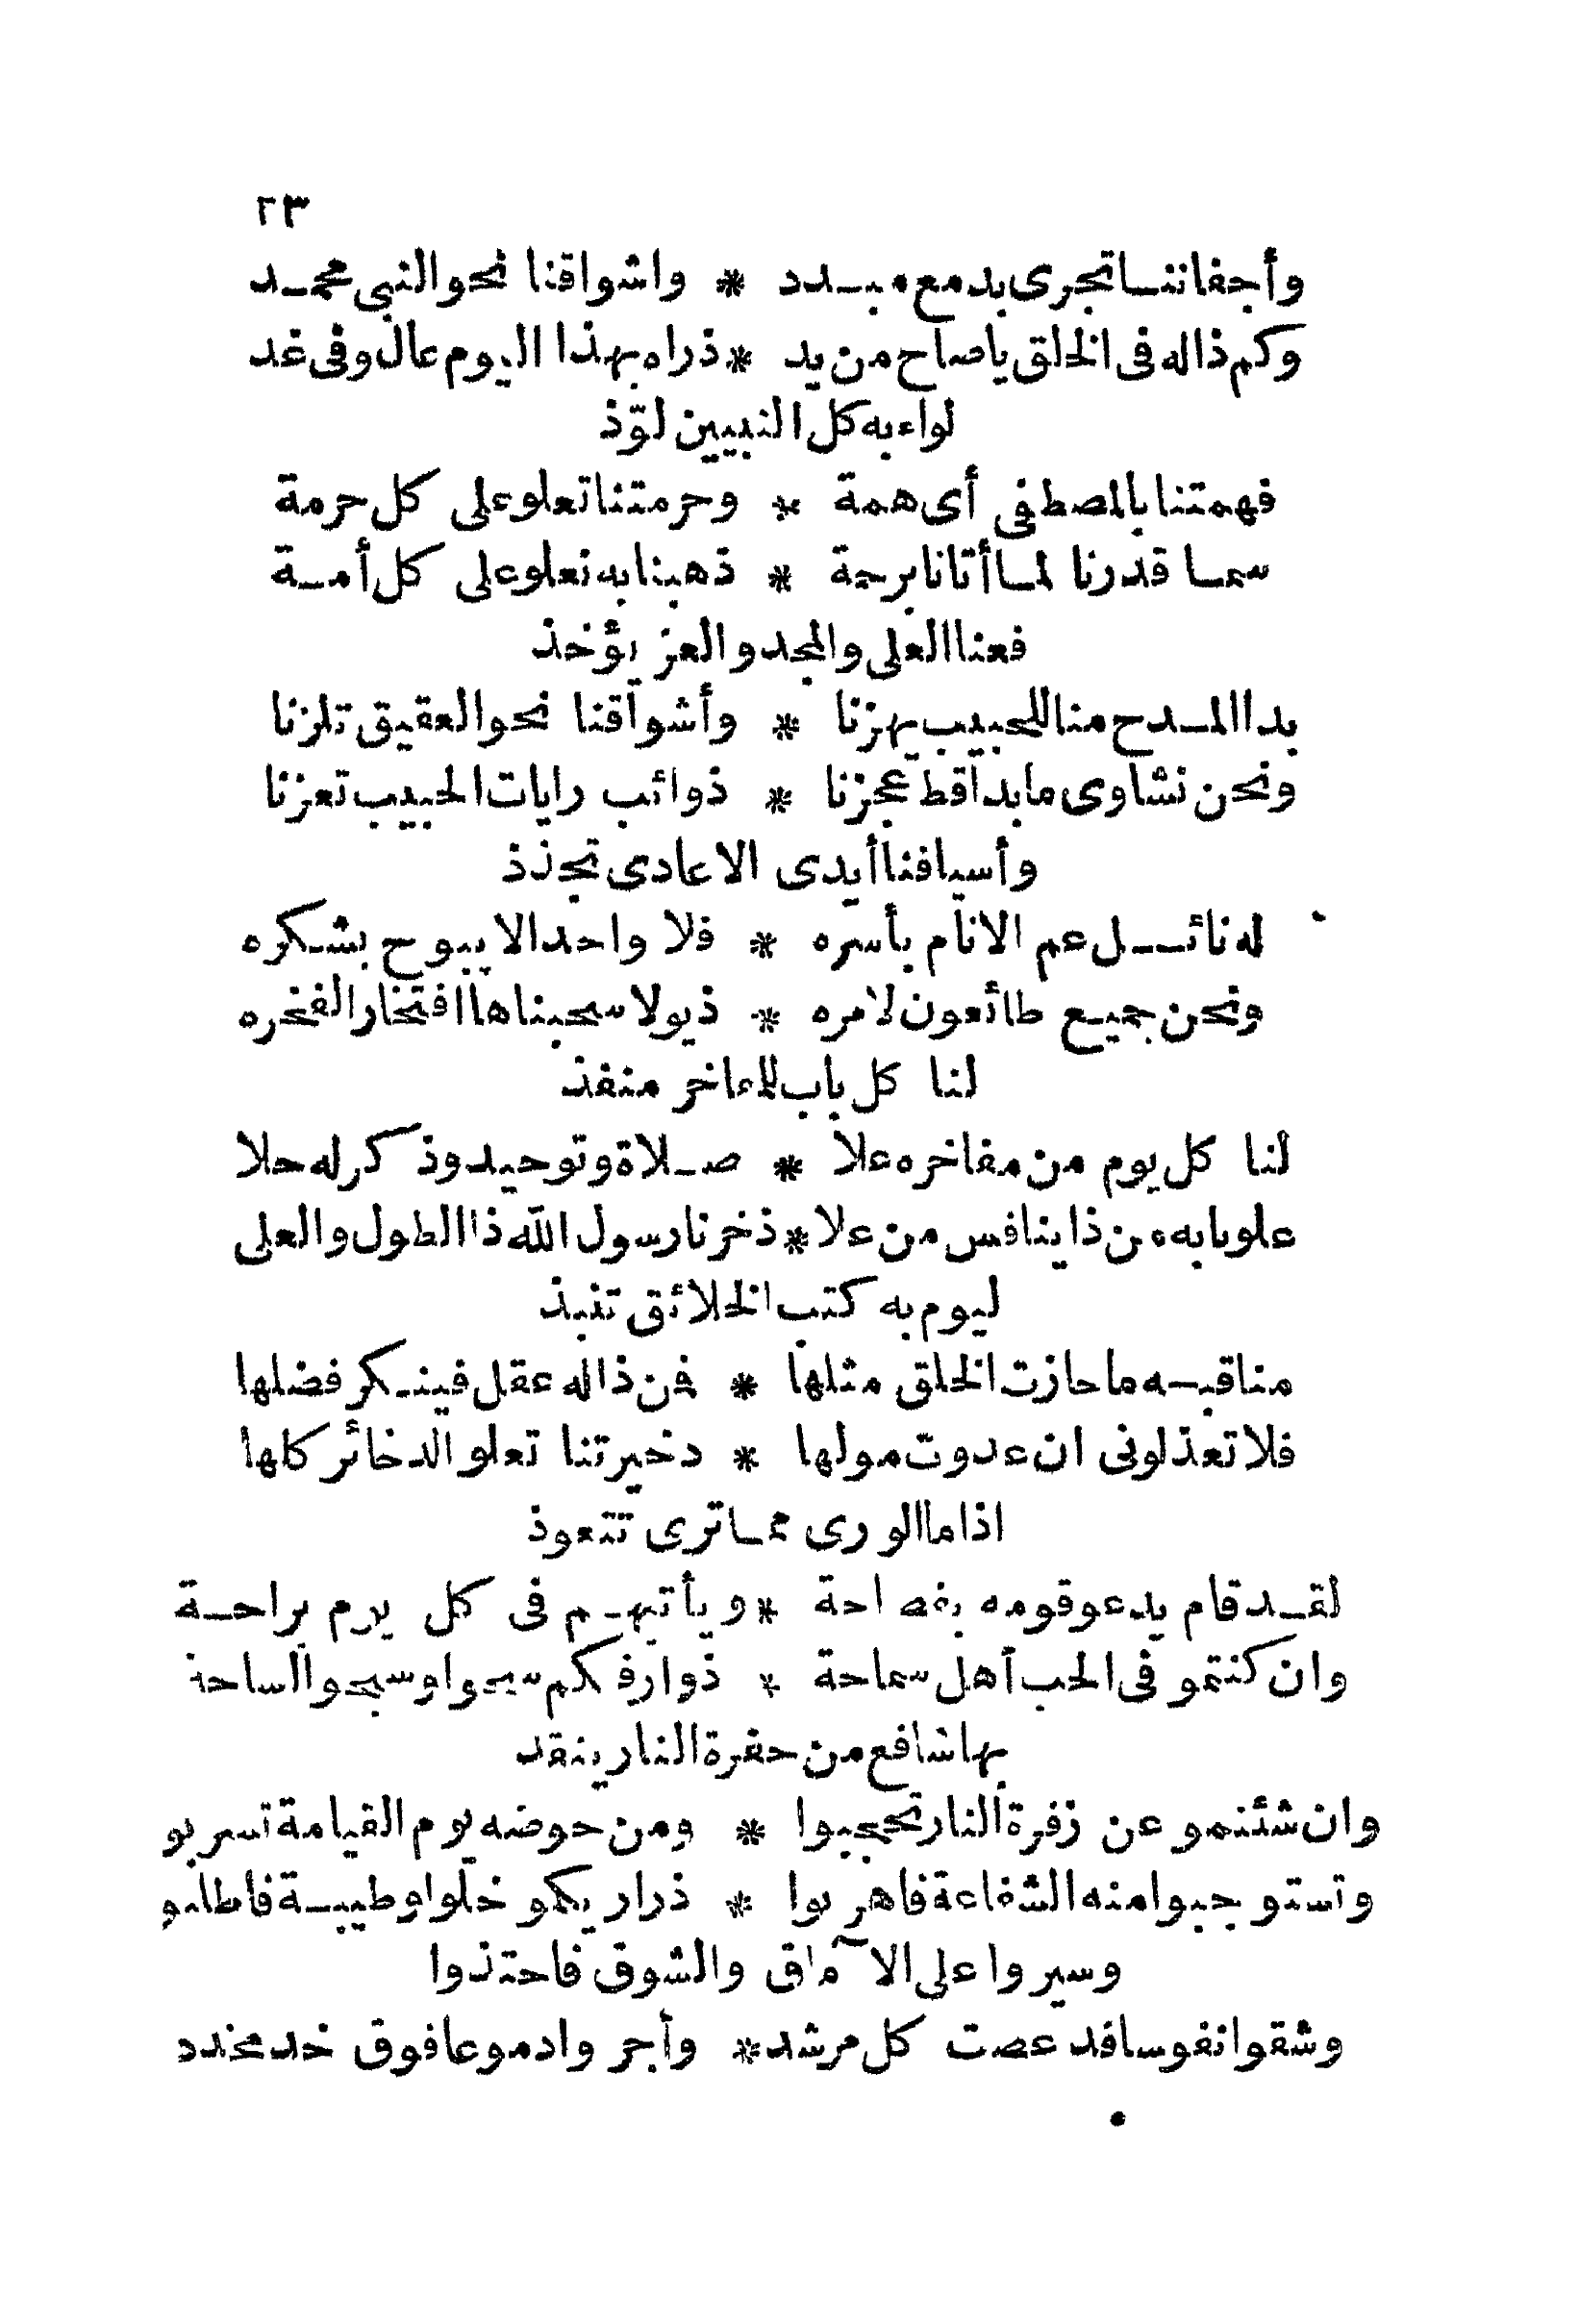 ٢٣
وأجفاننا تجرى بدمع مبدد * واشواقنا نحو النبى محمد
وكم ذا له فى الخلق ياصاح من يد * ذراه بهذا اليوم عال وفى غد
لواء به كل النبيين لوّذ
فهمتنا بالمصطفى أى همة * وحرمتنا تعلو على كل حرمة
سما قدرنا لما أتانا برحمة * ذهبنا به نعلو على كل أمة
فعنا العلى والمجد والعز يؤخذ
بدا المدح منا للحبيب يهزنا * وأشواقنا نحو العقيق تلزنا
ونحن نشاوى ما بدا قط عجزنا * ذوائب رايات الحبيب تعزنا
وأسيافنا أيدى الاعادى تجذذ
له نائل عم الانام بأسره * فلا واحد الا يبوح بشكره
ونحن جميع طائعون لامره * ذيولا سحبناها افتخارا لفخره
لنا كل باب للمفاخر منفذ
لنا كل يوم من مفاخره علا * صلاة وتوحيد وذكر له حلا
علونا به من ذا ينافس من علا * ذخرنا رسول الله ذا الطول والعلى
ليوم به كتب الخلائق تنبذ
مناقبه ما حازت الخلق مثلها * فمن ذا له عقل فينكر فضلها
فلا تعذلونى ان غدوت مولها * دخيرتنا تعلو الدخائر كلها
اذا ما الورى مما ترى تتعوذ
لقد قام يدعو قومه بفصاحة * ويأتيهم فى كل يوم براحة
وان كنتمو فى الحب أهل سماحة * ذوارفكم سحوا وسيحوا لساحة
بها شافع من حفرة النار ينقد
وان شئتمو عن زفرة النار تحجبوا * ومن حوضه يوم القيامة تسربو
وتستوجبوا منه الشفاعة فاهربوا * ذراريكمو خلوا وطيبة فاطلبو
وسيروا على الآماق والشوق فاحتذوا
وشقوا نفوسا قد عصت كل مرشد * وأجروا دموعا فوق خد مخدد